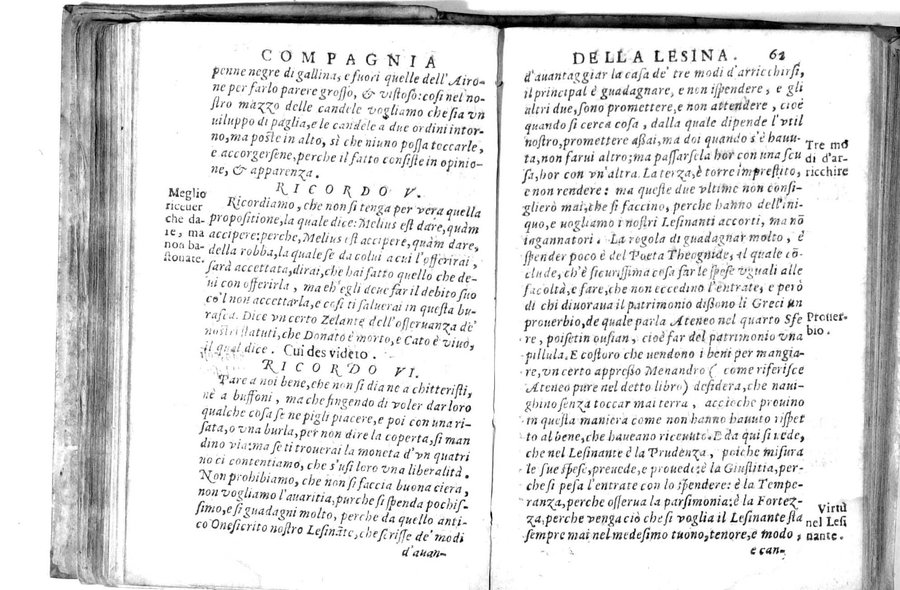 COMPAGNIA
penne negre di gallina, e fuori quelle dell'Airo-
ne per farlo parere grosso, & vistoso: così nel no-
stro mazzo delle candele vogliamo che sia vn
viluppo di paglia, e le candele a due ordini intor-
no, ma poste in alto, sì che niuno possa toccarle,
e accorgersene, perche il fatto consiste in opinio-
ne, & apparenza.
RICORDO V.
Meglio
riceuer
che da-
re, ma
non ba-
stonate.
Ricordiamo, che non si tenga per vera quella
propositione, la quale dice: Melius est dare, quàm
accipere: perche, Melius est accipere, quàm dare,
della robba, la quale se da colui a cui l'offerirai,
sarà accettata, dirai, che hai fatto quello che de-
ui con offerirla, ma ch'egli deue far il debito suo
co'l non accettarla, e così ti saluerai in questa bu-
rasca. Dice vn certo Zelante dell'osseruanza de'
nostri statuti, che Donato è morto, e Cato è viuo,
il qual dice. Cui des videto.
RICORDO VI.
Pare a noi bene, che non si diane a chitteristi,
nè a buffoni, ma che fingendo di voler dar loro
qualche cosa se ne pigli piacere, e poi con una ri-
sata, o vna burla, per non dire la coperta, si man
dino via: ma se ti trouerai la moneta d'vn quatri
no ci contentiamo, che s'usi loro vna liberalità.
Non prohibiamo, che non si faccia buona ciera,
non vogliamo l'auaritia, purche si spenda pochis-
simo, e si guadagni molto, perche da quello anti-
co Onesicrito nostro Lesināte, che scrisse de' modi
d'auan-
DELLA LESINA. 62
d'auantaggiar la casa de' tre modi d'arricchirsi,
il principal è guadagnare, e non ispendere, e gli
altri due, sono promettere, e non attendere, cioè
quando si cerca cosa, dalla quale dipende l'vtil
nostro, promettere assai, ma doi quando s'è hauu-
ta, non farui altro; ma passarsela hor con una scu
sa, hor con vn'altra. La terza, è torre imprestito,
e non rendere: ma queste due vltime non consi-
glierò mai, che si faccino, perche hanno dell'ini-
quo, e uogliamo i nostri Lesinanti accorti, ma nō
ingannatori. La regola di guadagnar molto, è
spender poco è del Poeta Theognide, il quale cō-
clude, ch'è sicurissima cosa far le spese vguali alle
facoltà, e fare, che non eccedino l'entrate, e però
di chi diuoraua il patrimonio dissono li Greci un
prouerbio, de quale parla Ateneo nel quarto Sfe
re, poisetin ousian, cioè far del patrimonio vna
pillula. E costoro che uendono i beni per mangia-
re, vn certo appresso Menandro (come riferisce
Ateneo pure nel detto libro) desidera, che naui-
ghino senza toccar mai terra, accioche prouino
in questa maniera come non hanno hauuto rispet
to al bene, che haueano riceuuto. E da qui si uede,
che nel Lesinante è la Prudenza, poiche misura
le sue spese, preuede, e prouede: è la Giustitia, per-
che si pesa l'entrate con lo spendere: è la Tempe-
ranza, perche osserua la parsimonia: è la Fortez-
za, perche venga ciò che si voglia il Lesinante sta
sempre mai nel medesimo tuono, tenore, e modo,
e can-
Tre mo
di d'ar-
ricchire
Prouer-
bio.
Virtù
nel Lesi
nante.